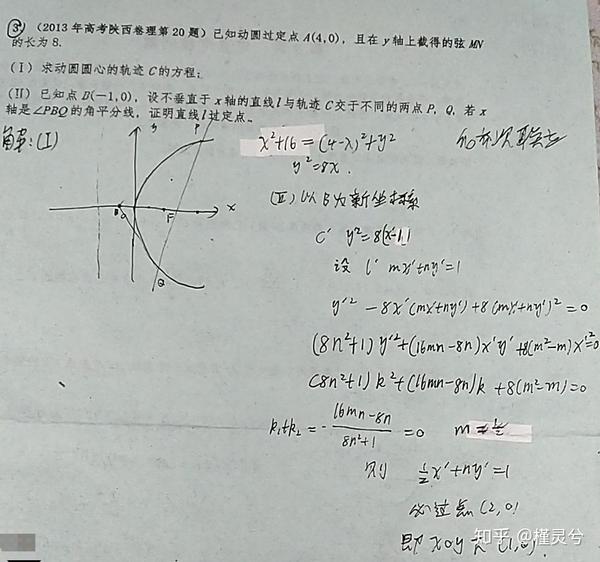 ③ (2013年高考陕西卷理第20题) 已知动圆过定点 A(4,0), 且在 y 轴上截得的弦 MN
的长为 8.
(Ⅰ) 求动圆圆心的轨迹 C 的方程;
(Ⅱ) 已知点 B(-1,0), 设不垂直于 x 轴的直线 l 与轨迹 C 交于不同的两点 P, Q, 若 x
轴是∠PBQ 的角平分线, 证明直线 l 过定点.
解:(Ⅰ)
y
P
x
B
F
Q
x²+16=(4-x)²+y²
y²=8x.
(Ⅱ) 以B为新坐标系
C' y²=8(x'-1)
设 l' mx'+ny'=1
y'²-8x'(mx'+ny')+8(mx'+ny')²=0
(8n²+1)y'²+(16mn-8n)x'y'+8(m²-m)x'²=0
(8n²+1)k²+(16mn-8n)k+8(m²-m)=0
k₁+k₂=-(16mn-8n)/(8n²+1)=0 m=½
则 ½x'+ny'=1
必过点(2,0)
即 xoy 大 (1,0).
知乎 @槿灵兮